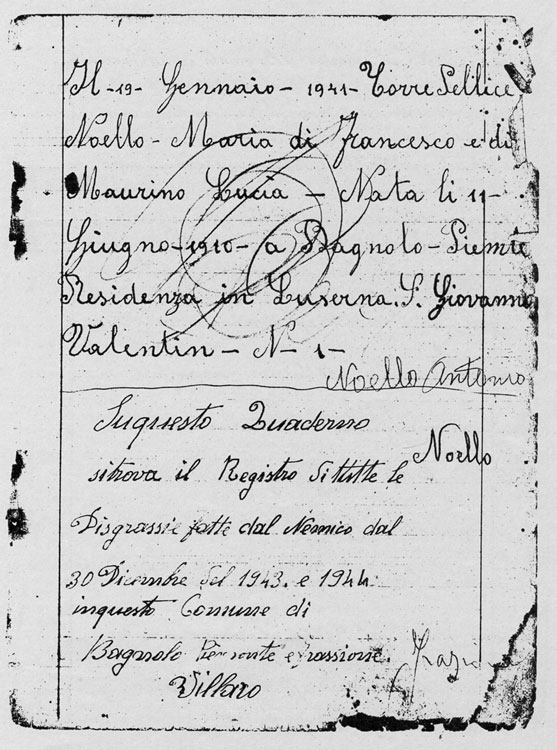 Il -19- Gennaio - 1941 - Torre Pellice
Noello - Maria di Francesco e di
Maurino Lucia - Nata li 11 -
Giugno - 1910 - a Bagnolo - Piemte
Residenza in Luserna. S. Giovanni
Valentin - N - 1 -
Noello Antonio
Suquesto Quaderno
Noello
sitrova il Registro di tutte le
Disgrassie fatte dal Nemico dal
30 Dicembre del 1943. e 1944.
inquesto Comune di
Bagnolo Piemonte e frassione.
Villaro